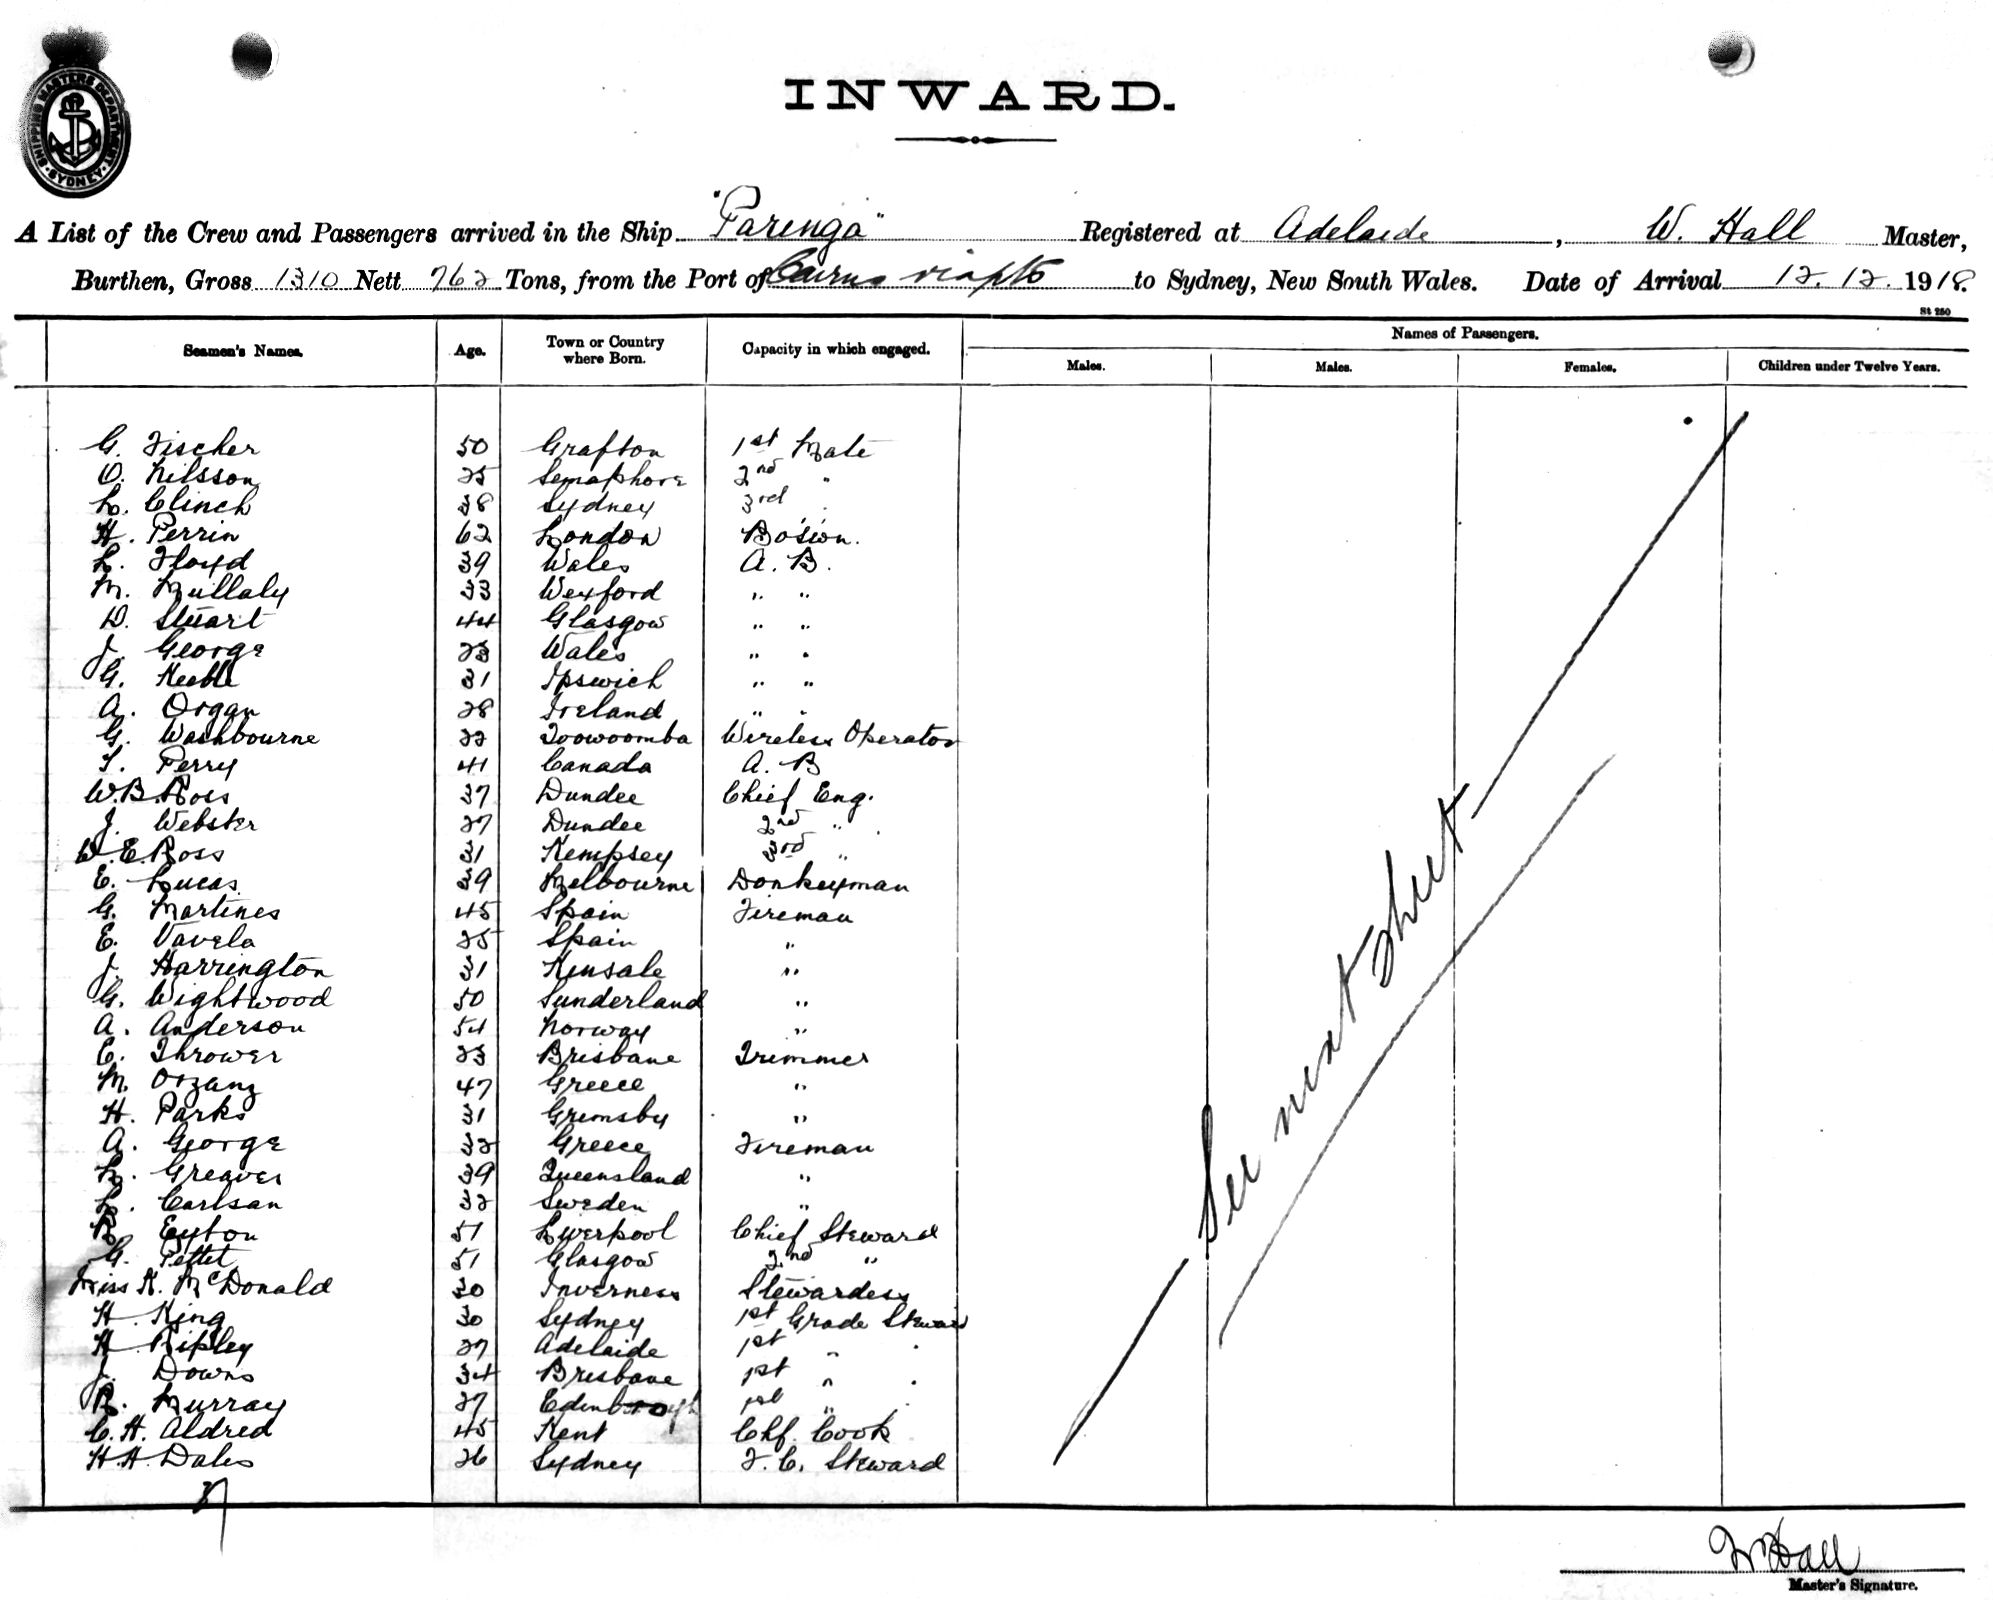 SHIPPING MASTERS DEPARTMENT · SYDNEY ·
INWARD.
A List of the Crew and Passengers arrived in the Ship "Parenga" Registered at Adelaide, W. Hall Master,
Burthen, Gross 1310 Nett 762 Tons, from the Port of Cairns via pts to Sydney, New South Wales. Date of Arrival 12.12.1918.
St 250
Seamen's Names. Age. Town or Country where Born. Capacity in which engaged. Names of Passengers.
Males. Males. Females. Children under Twelve Years.
G. Fischer 50 Grafton 1st Mate
O. Nilsson 25 Semaphore 2nd "
L. Clinch 38 Sydney 3rd
H. Perrin 62 London Bo's'n.
L. Floyd 39 Wales A. B.
M. Mullaly 33 Wexford " "
D. Stuart 44 Glasgow " "
J. George 23 Wales " "
G. Keeble 31 Ipswich " "
A. Organ 28 Ireland " "
G. Washbourne 22 Toowoomba Wireless Operator
T. Perry 41 Canada A. B
W.B. Ross 37 Dundee Chief Eng.
J. Webster 27 Dundee 2nd "
W.E. Ross 31 Kempsey 3rd "
E. Lucas 39 Melbourne Donkeyman
G. Martines 45 Spain Fireman
E. Vavela 25 Spain "
J. Harrington 31 Kinsale "
G. Wightwood 50 Sunderland "
A. Anderson 54 Norway "
E. Thrower 23 Brisbane Trimmer
M. 47 Greece "
H. Parks 31 Grimsby "
A. George 32 Greece Fireman
L. Greaves 39 Queensland "
L. Carlsan 32 Sweden "
R. Eyton 51 Liverpool Chief Steward
G. Pettet 51 Glasgow 2nd "
Miss K. McDonald 30 Inverness Stewardess
H. King 30 Sydney 1st Grade Steward
H. Ripley 27 Adelaide 1st "
J. Downs 34 Brisbane 1st "
R. Murray 27 Edinborough 1st "
C.H. Aldred 45 Kent Chf. Cook
H.H. Dales 26 Sydney F. C. Steward
37
See next sheet
W Hall
Master's Signature.